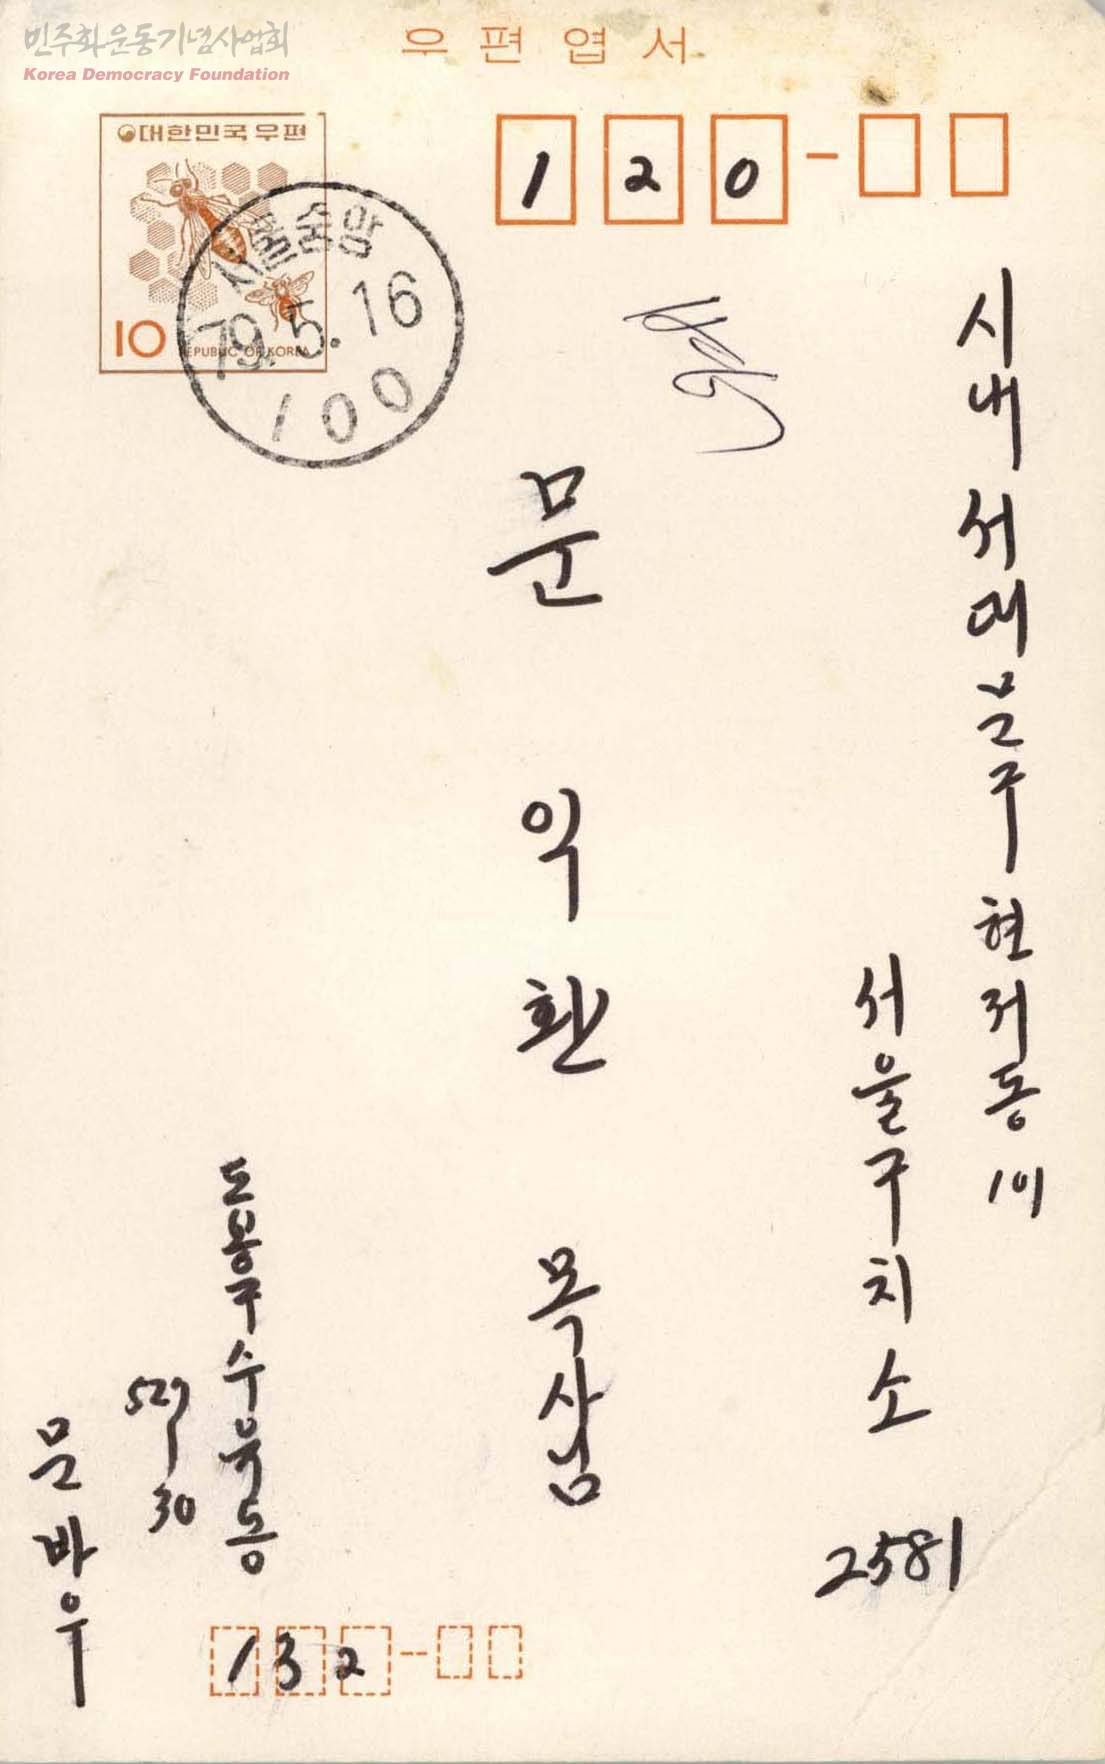 민주화운동기념사업회
Korea Democracy Foundation
우편엽서
대한민국우편
10
REPUBLIC OF KOREA
서울숭암
79.5.16
100
120-
시내 서대문구 현저동 101
서울구치소 2581
문익환 목사님
도봉구 수유동
527-30
문바우
132-